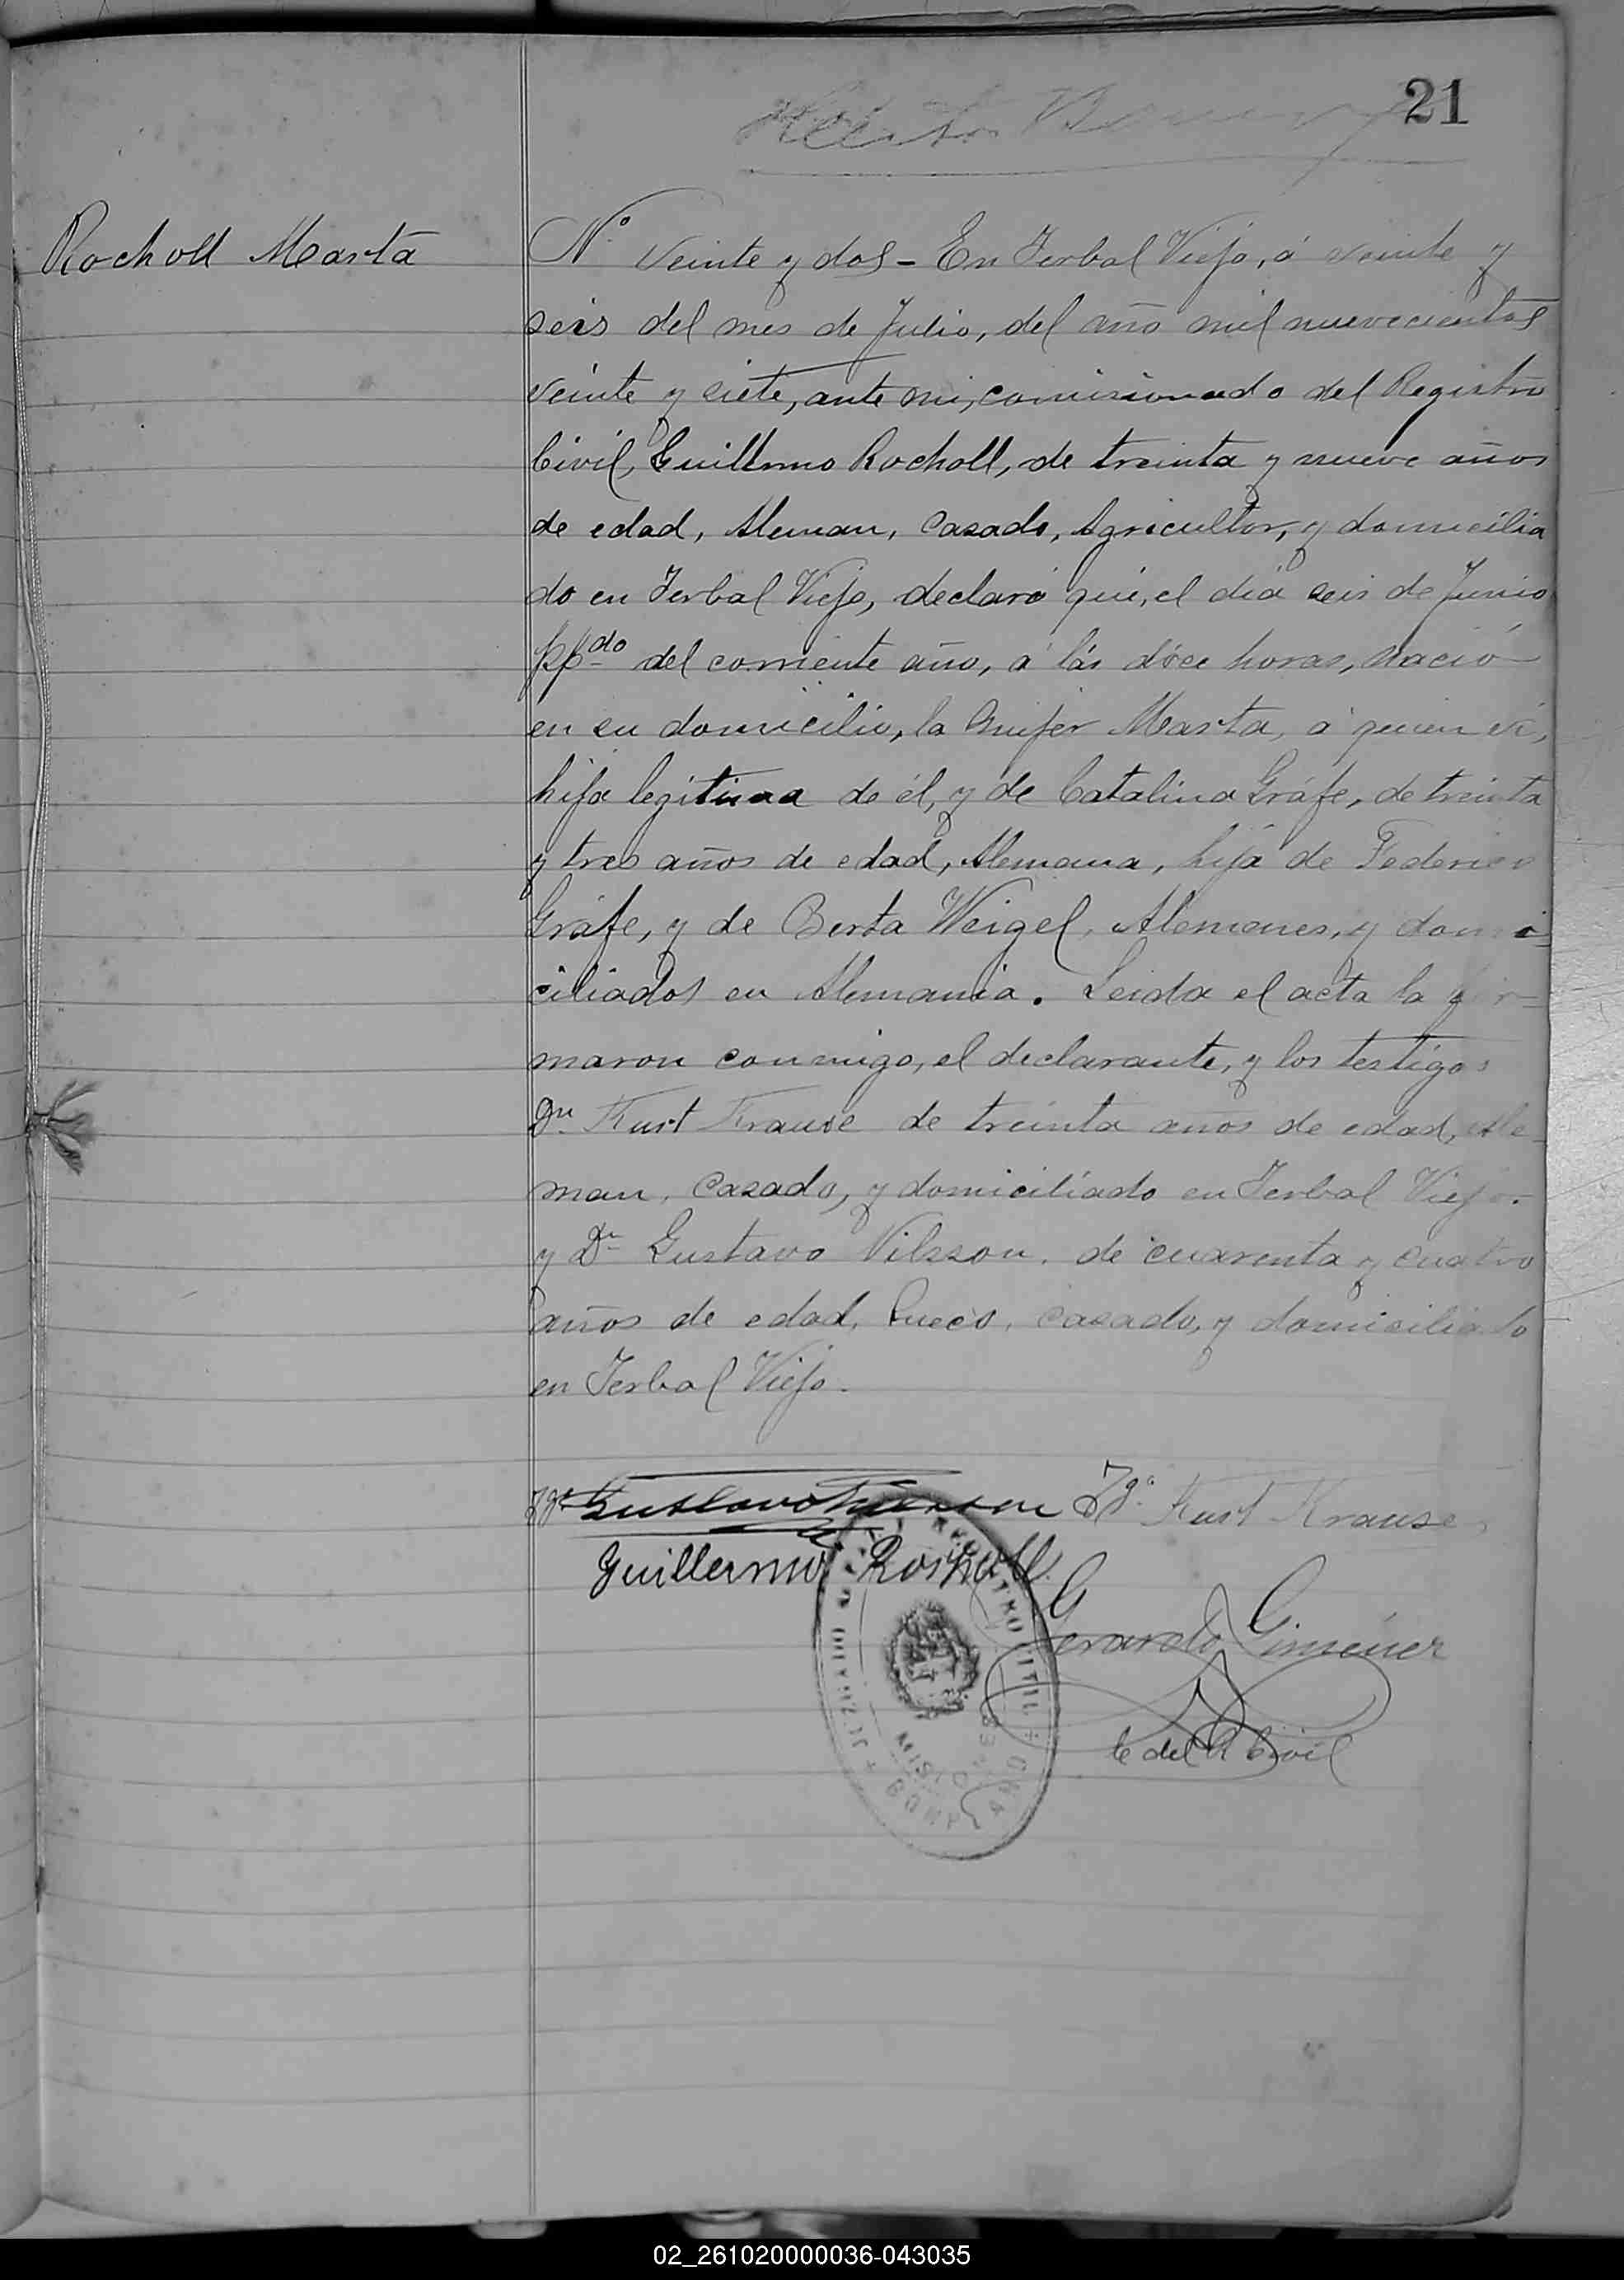 21
Rocholl Marta
Nº Veinte y dos - En Yerbal Viejo, á veinte y
seis del mes de Julio, del año mil nuevecientos
veinte y siete, ante mi, comisionado del Registro
Civil, Guillermo Rocholl, de treinta y nueve años
de edad, Aleman, Casado, Agricultor, y domicilia
do en Yerbal Viejo, declaró que, el dia seis de Junio
ppdo del corriente año, á las dóce horas, nació
en su domicilio, la mujer Marta, á quien ví,
hija legítima de él, y de Catalina Gráfe, de treinta
y tres años de edad, Alemana, hija de Federico
Gráfe, y de Berta Weigel, Alemanes, y domi-
ciliados en Alemania. Leida el acta la fir-
maron conmigo, el declarante, y los testigos
Dn Kurt Krause de treinta años de edad, Ale-
man, Casado, y domiciliado en Yerbal Viejo.
y Dn Gustavo Nilsson, de cuarenta y cuatro
años de edad, Sueco, casado, y domiciliado
en Yerbal Viejo.
Tgo Gustavo Nilsson Tgo Kurt Krause
Guillermo Rocholl
Gerardo Giménez
C del R Civil
REGISTRO CIVIL
MISIONES
BOMPLAND
02_261020000036-043035